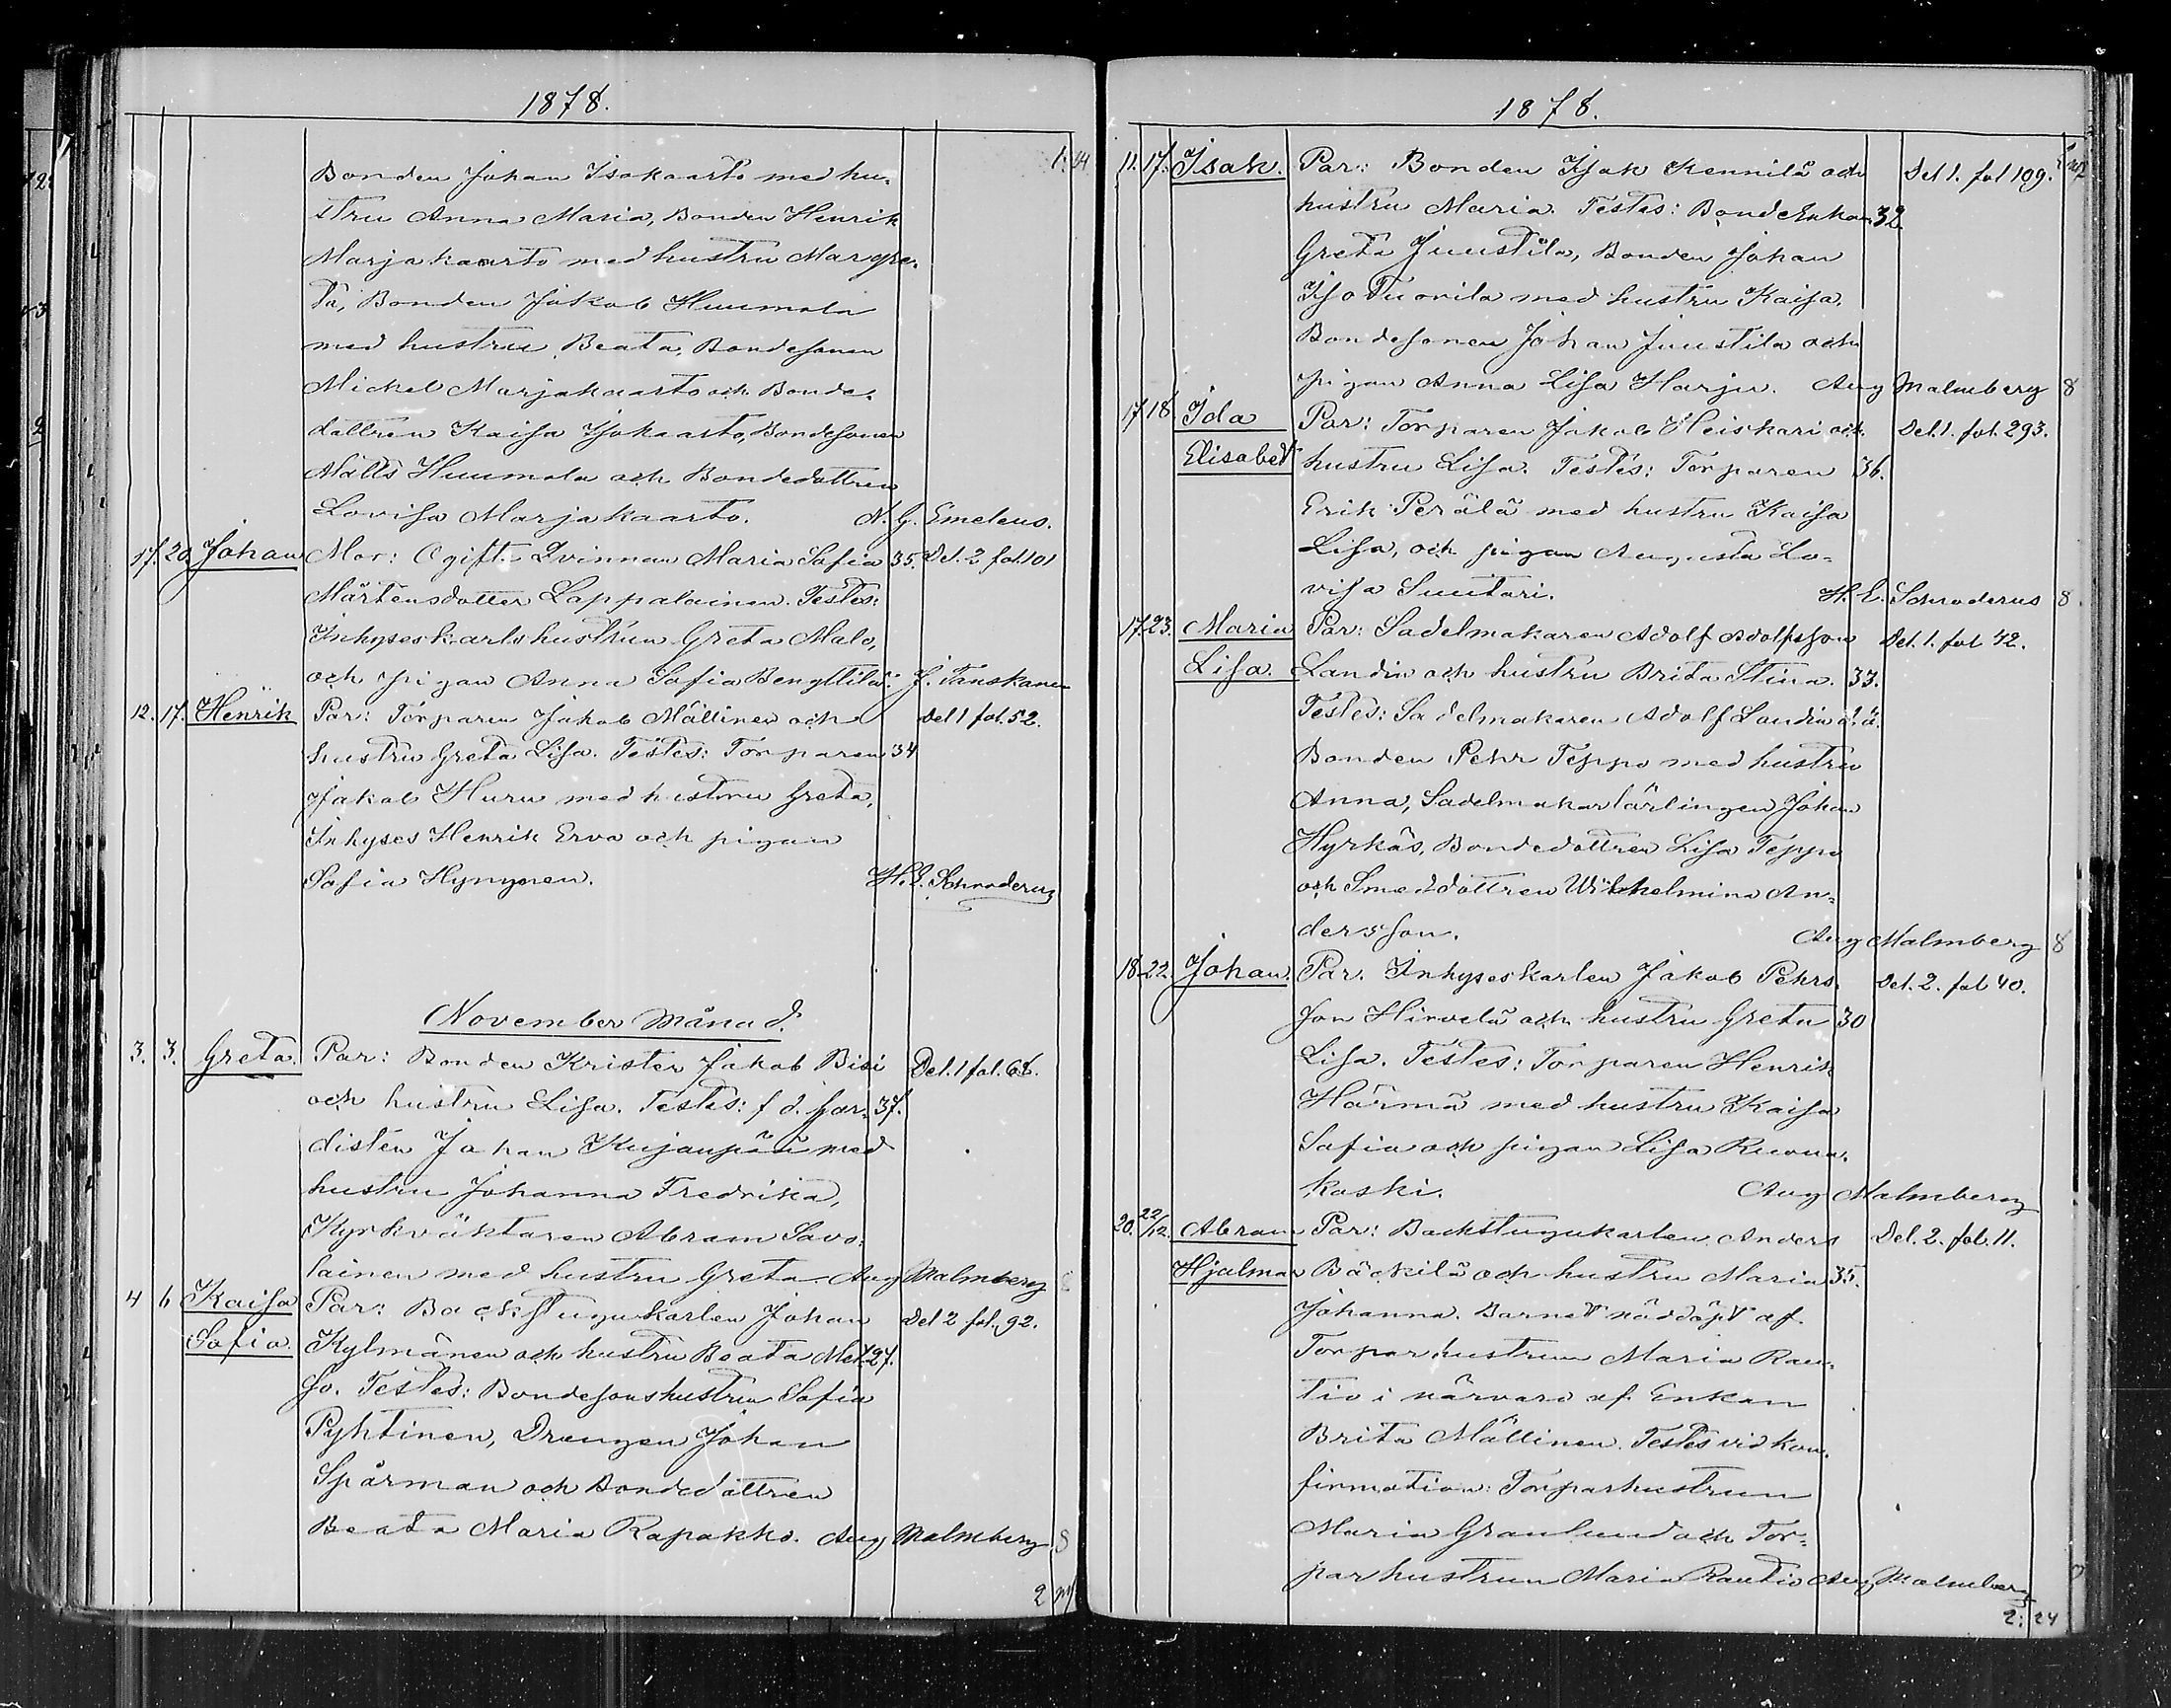 1878.
Bonden Johan Isokaarto med hu-
stru Anna Maria, Bonden Henrik
Marjakaarto med hustru Margre-
ta, Bonden Jakob Huumola
med hustru Beata, Bondesonen
Mickel Marjakaarto och Bonde-
dottren Kaisa Isokaarto, Bondesonen
Matts Huumola och Bondedottren
Lovisa Marjakaarto. N. G. Emeleus.
17. 20. Johan Mor: Ogift Qvinnan Maria Sofia 35. Del. 2 fol. 101
Mårtensdotter Lappalainen. Testes:
Inhyseskarlshustrun Greta Malo,
och pigan Anna Sofia Bengttilä. J. Tanskanen
12. 17. Henrik Par: Torparen Jakob Mällinen och Del 1 fol. 52.
hustru Greta Lisa. Testes: Torparen 34
Jakob Huru med hustru Greta,
Inhyses Henrik Erva och pigan
Sofia Hynynen. H. E. Schroderus
November Månad.
3. 3. Greta. Par: Bonden Krister Jakob Bisi Del. 1 fol. 68.
och hustru Lisa. Testes: f d. Gar- 37.
disten Johan Kujanpää med
hustru Johanna Fredrika,
Kyrkväktaren Abram Savo-
lainen med hustru Greta. Aug Malmberg 8
4 6 Kaisa Par: Backstugukarlen Johan Del 2 fol. 92.
Sofia. Kylmänen och hustru Beata Met- 27.
so. Testes: Bondesonshustrun Sofia
Pyhtinen, Drengen Johan
Spårman och Bondedottren
Beata Maria Rapakko. Aug Malmberg 8
1878.
11. 17. Isak. Par: Bonden Isak Kennilä och Del 1. fol 109.
hustru Maria. Testes: Bondeenkan 32.
Greta Juustila, Bonden Johan
Iso Tuovila med hustru Kaisa.
Bondesonen Johan Juustila och
pigan Anna Lisa Harju. Aug Malmberg 8
17 18 Ida Par: Torparen Jakob Heiskari och Del. 1. fol. 293.
Elisabet hustru Lisa. Testes: Torparen 36.
Erik Perälä med hustru Kaisa
Lisa, och pigan Augusta Lo-
visa Suutari. H. E. Schroderus 8
17 23. Maria Par: Sadelmakaren Adolf Adolfsson Del. 1. fol 42.
Lisa. Landin och hustru Brita Stina. 33.
Testes: Sadelmakaren Adolf Landin d. ä.
Bonden Pehr Teppo med hustru
Anna, Sadelmakarlärlingen Johan
Hyrkäs, Bondedottren Lisa Teppo
och Smeddottren Wilhelmina An-
dersson. Aug Malmberg 8
18. 22. Johan. Par. Inhyseskarlen Jakob Pehrs- Del. 2. fol 40.
son Hirvelä och hustru Greta 30
Lisa. Testes: Torparen Henrik
Härmä med hustru Kaisa
Sofia och pigan Lisa Ruona-
koski. Aug Malmberg
20. 22/12. Abram Par: Backstugukarlen Anders Del. 2. fol. 11.
Hjalmar Bäckilä och hustru Maria 35.
Johanna. Barnet nöddöpt af
Torparhustrun Maria Rau-
tio i närvaro af Enkan
Brita Mällinen. Testes vid kon-
firmation: Torparhustrun
Maria Granlund och Tor-
parhustrun Maria Rautio Aug Malmberg
2: 24